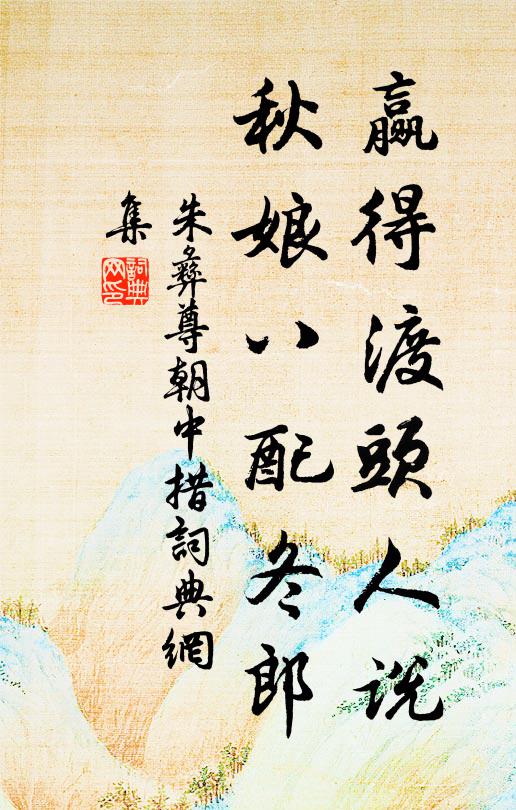 贏得渡頭人說
秋娘八配冬郎
朱彝尊朝中措詞典網
集
詞典
网印